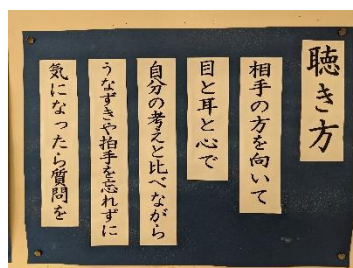 聴き方
相手の方を向いて
目と耳と心で
自分の考えと比べながら
うなずきや拍手を忘れずに
気になったら質問を